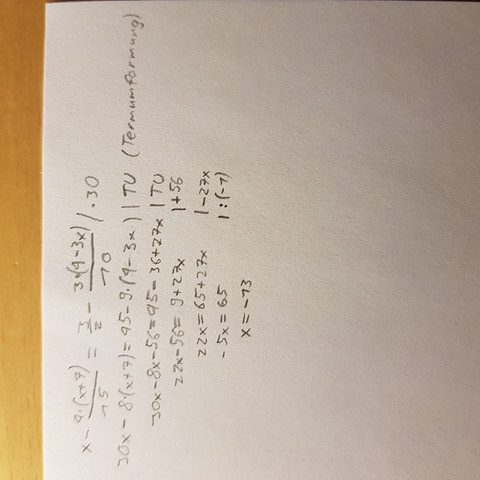 x - 4·(x+7)/15 = 3/2 - 3·(4-3x)/10 | ·30
30x - 8·(x+7) = 45 - 9·(4-3x) | TU (Termumformung)
30x - 8x - 56 = 45 - 36 + 27x | TU
22x - 56 = 9 + 27x | +56
22x = 65 + 27x | -27x
-5x = 65 | :(-1)
x = -13